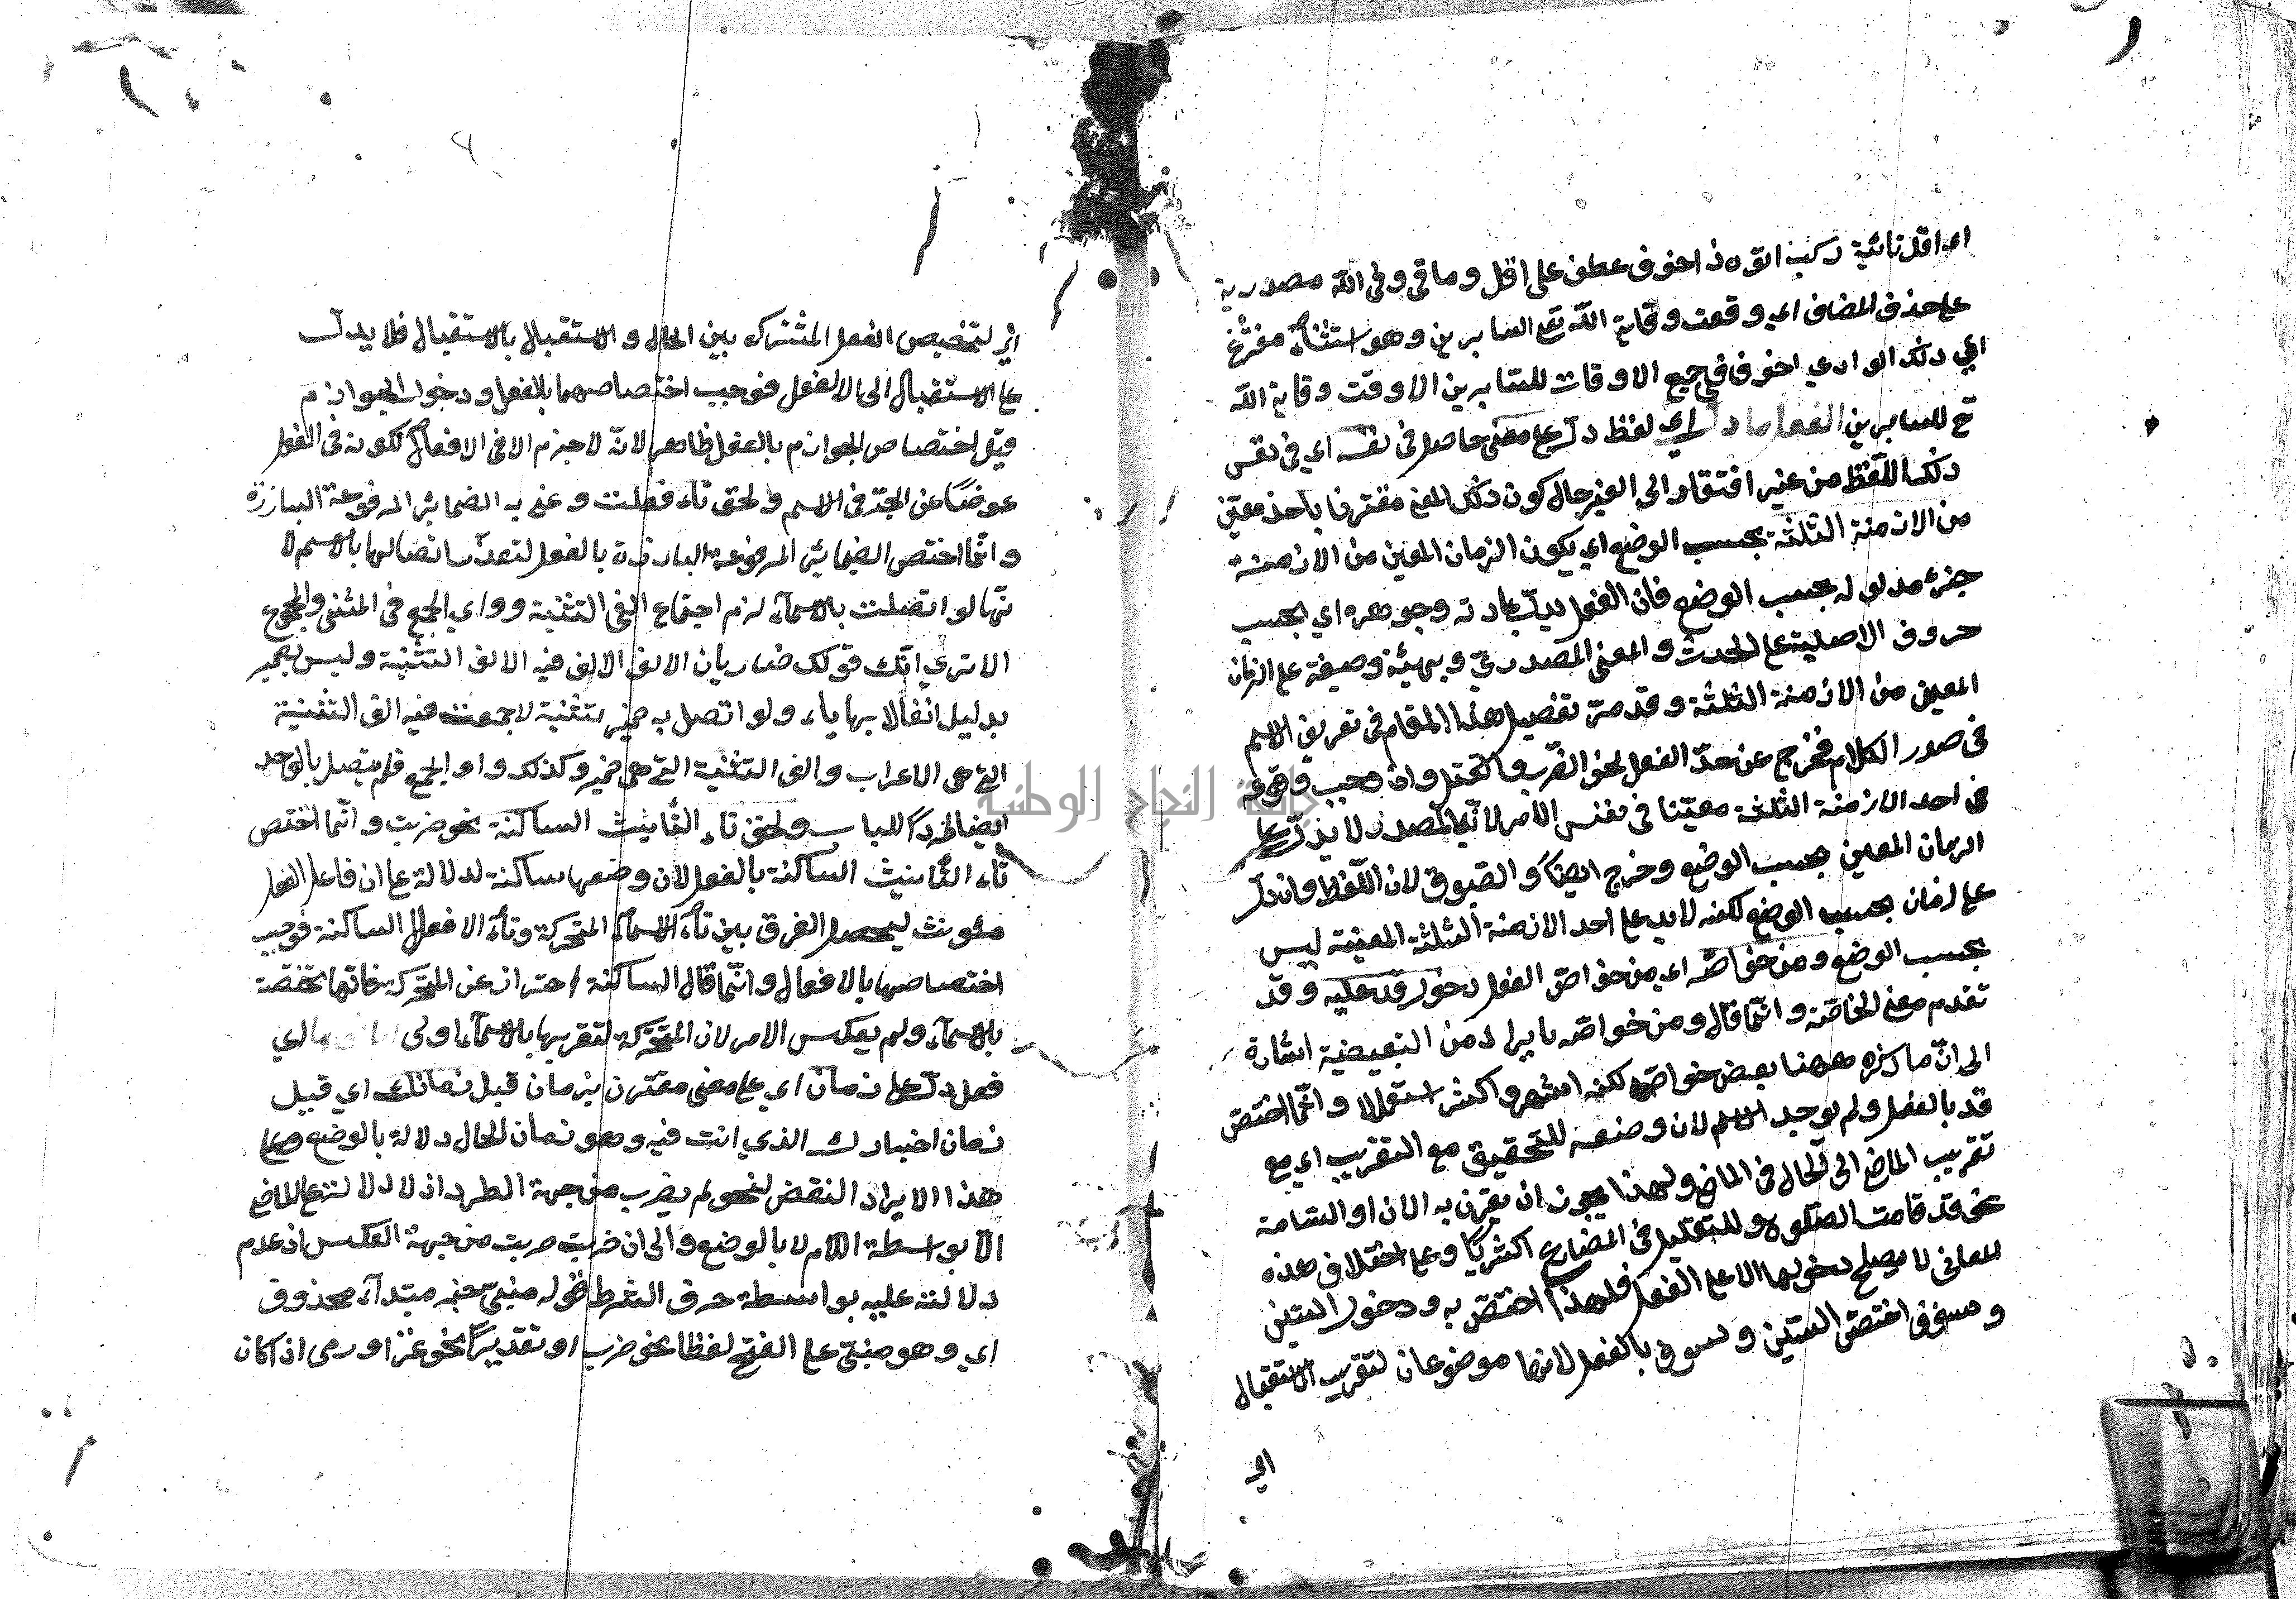 اي اقل تائية ركب اتوه ذا خوف عطف على اقل وما في وقى الله مصدرية
على حذف المضاف اي وقت وقاية الله تع السابرين وهو استثناء مفرغ
اي ذلك الوادي اخوف في جميع الاوقات للسابرين الا وقت وقاية الله
تع للسابرين الفعل ما دل اي لفظ دل على معنى حاصل في نفسه اي في نفس
ذلك اللفظ من غير افتقار الى الغير حال كون ذلك المعنى مقترنا باحد معين
من الازمنة الثلثة بحسب الوضع اي يكون الزمان المعين من الازمنة
جزء مدلوله بحسب الوضع فان الفعل يدل بمادته وجوهره اي بحسب
حروف الاصلية على الحدث والمعنى المصدري وبهيئة وصيغة على الزمان
المعين من الازمنة الثلثة وقد مر تفصيل هذا المقام في تعريف الاسم
في صدر الكلام فخرج عن حد الفعل نحو الضرب والقتل وان وجب وقوعه
في احد الازمنة الثلثة معينا في نفس الامر لان المصدر لا يدل على
الزمان المعين بحسب الوضع وخرج ايضا الصبوح والغبوق لان اللفظ وان دل
على زمان بحسب الوضع لكنه لا يدل على احد الازمنة الثلثة المعينة ليس
بحسب الوضع ومن خواصه اي من خواص الفعل دخول قد عليه وقد
تقدم معنى الخاصة وانما قال ومن خواصه بايراد من التبعيضية اشارة
الى ان ما ذكره ههنا بعض خواصه لكنه اشهر واكثر استعمالا وانما اختص
قد بالفعل ولم يوجد الاسم لان وضعه للتحقيق مع التقريب اي مع
تقريب الماضي الى الحال في الماضي ولهذا يجوز ان يقترن به الان او الساعة
نحو قد قامت الصلوة وللتقليل في المضارع اكثريا وعلى اختلاف هذه
المعاني لا يصلح دخولها الا على الفعل فلهذا اختص به ودخول السين
وسوف اختص السين وسوف بالفعل لانهما موضوعان لتقريب الاستقبال
اي
اي لتخصيص الفعل المشترك بين الحال والاستقبال بالاستقبال فلا يدل
على الاستقبال الى الا الفعل فوجب اختصاصهما بالفعل ودخول الجوازم
قيل اختصاص الجوازم بالفعل ظاهر لانه لا جزم الا في الافعال لكونه في الفعل
عوضا عن الجر في الاسم ولحق تاء فعلت وعنى به الضمائر المرفوعة البارزة
وانما اختص الضمائر المرفوعة البارزة بالفعل لتعذر اتصالها بالاسم لا
نها لو اتصلت بالاسماء لزم اجتماع الفي التثنية وواي الجمع في المثنى والمجموع
الا ترى انك قولك ضاربان الالف الالف فيه الالف التثنية وليس بضمير
بدليل انقلابها ياء ولو اتصل به ضمير تثنية لاجمعت فيه الف التثنية
التي هي الاعراب والف التثنية التي هي ضمير وكذلك واو الجمع فلم يتصل بالواحد
ايضا طردا للباب ولحق تاء التأنيث الساكنة نحو ضربت وانما اختص
تاء التأنيث الساكنة بالفعل لان وضعها ساكنة لدلالة على ان فاعل الفعل
مئونث ليحصل الفرق بين تاء الاسماء المتحركة وتاء الافعال الساكنة فوجب
اختصاصها بالافعال وانما قال الساكنة احتراز عن المتحركة فانها مختصة
بالاسماء ولم يعكس الامر لان المتحركة لتقريبها بالاسماء اولى الماضي ما اي
فعل دل على زمان اي على معنى مقترن بزمان قبل زمانك اي قبل
زمان اخبارك الذي انت فيه وهو زمان الحال دلالة بالوضع وعلى
هذا الايراد النقض لنحو لم يضرب من جهة الطرد اذ لا دلالته على الماضي
الا بواسطة اللام لا بالوضع والى ان ضربت ضربت من جهة العكس اذ عدم
دلالته عليه بواسطة حرف الشرط قوله مبني خبر مبتدأ محذوف
اي وهو مبني على الفتح لفظا نحو ضرب او تقديرا نحو غزا ورمى اذا كان
جامعة النجاح الوطنية